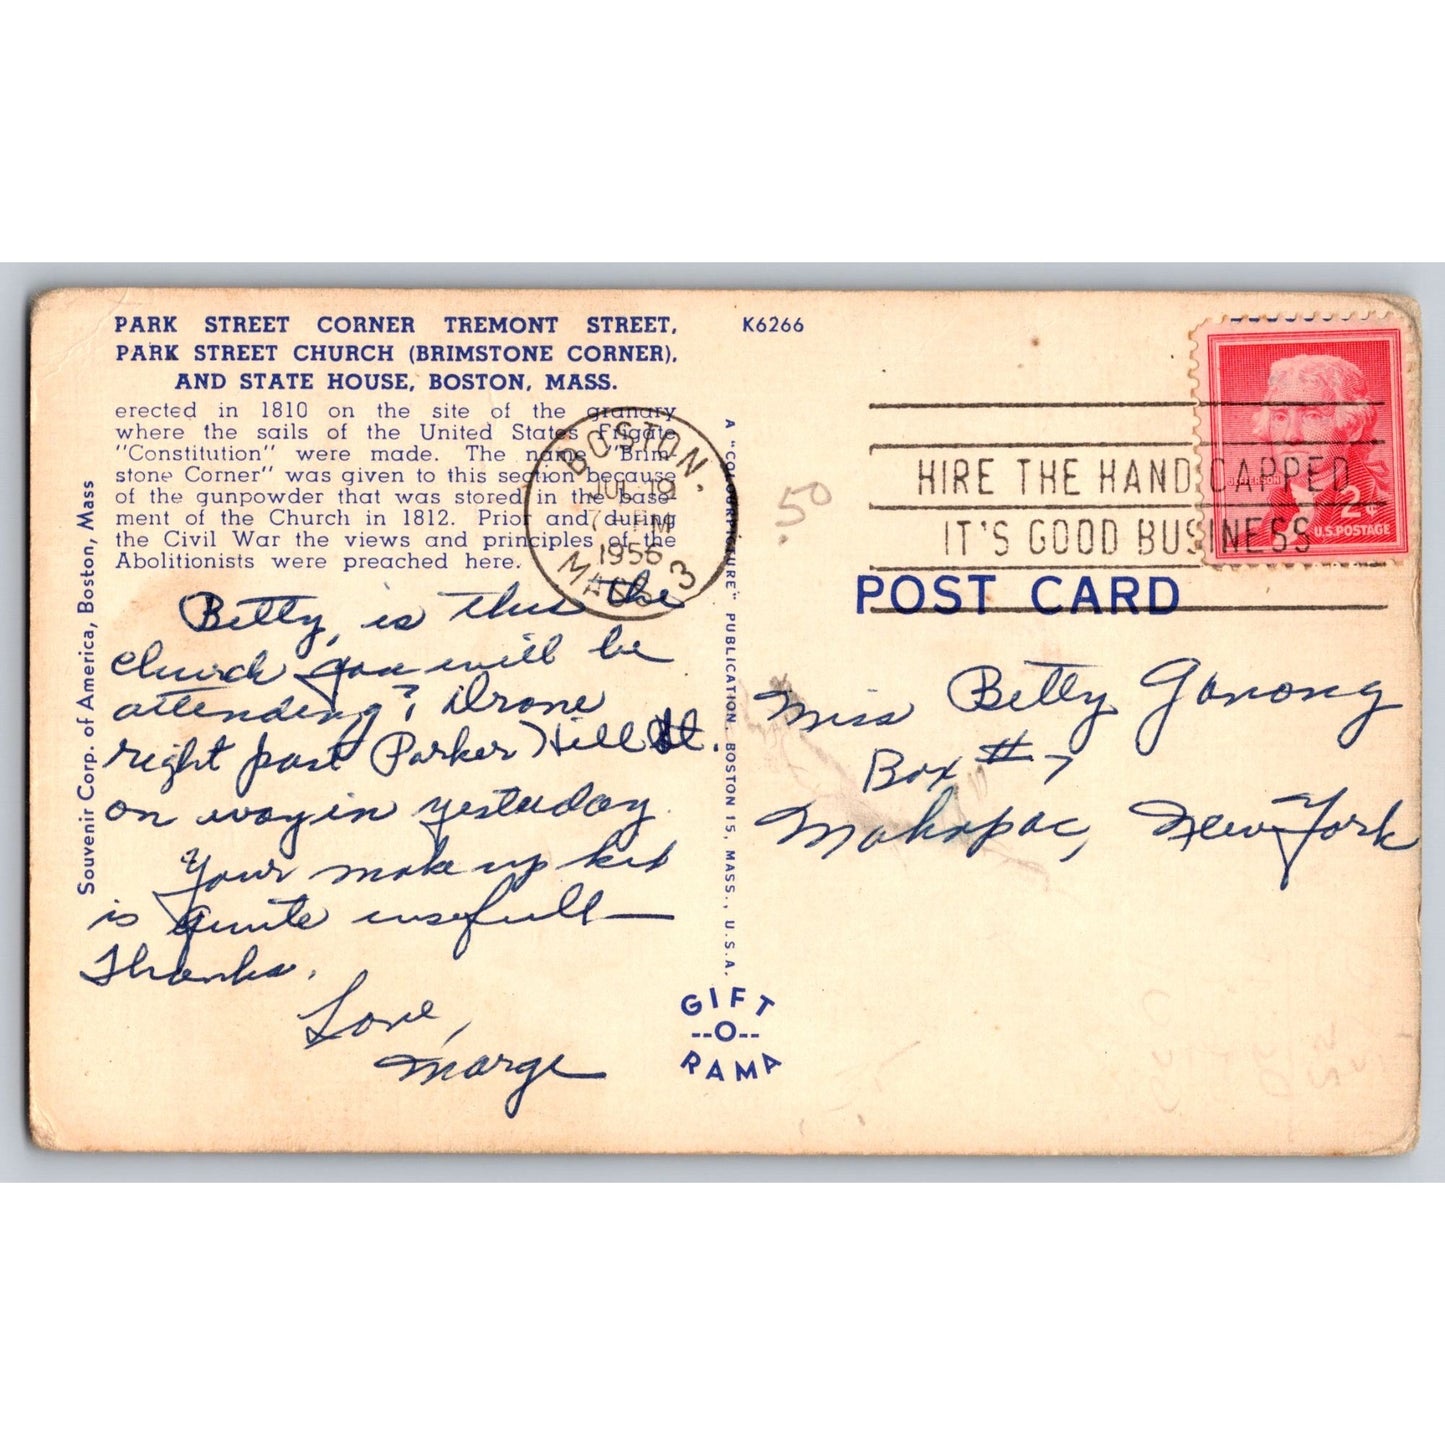 PARK STREET CORNER TREMONT STREET,
PARK STREET CHURCH (BRIMSTONE CORNER),
AND STATE HOUSE, BOSTON, MASS.
erected in 1810 on the site of the granary
where the sails of the United States Frigate
"Constitution" were made. The name "Brim
stone Corner" was given to this section because
of the gunpowder that was stored in the base-
ment of the Church in 1812. Prior and during
the Civil War the views and principles of the
Abolitionists were preached here.
Souvenir Corp. of America, Boston, Mass
Betty, is this the
church you will be
attending? Drove
right past Parker Hill St.
on way in yesterday.
Your make up kit
is quite usefull—
Thanks.
Love,
Marge
BOSTON,
JUL 19
7 – PM
1956
MASS. 3
A "COLOURPICTURE" PUBLICATION, BOSTON 15, MASS., U.S.A.
GIFT
--O--
RAMA
K6266
.50
HIRE THE HANDICAPPED
IT'S GOOD BUSINESS
JEFFERSON
2¢
U.S. POSTAGE
POST CARD
Miss Betty Ganong
Box # 7
Mahopac, New York